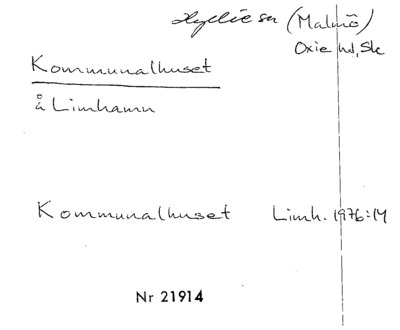 Hyllie sn (Malmö)
Oxie hd, Sk
Kommunalhuset
å Limhamn
Kommunalhuset Limh. 1976:14
Nr 21914